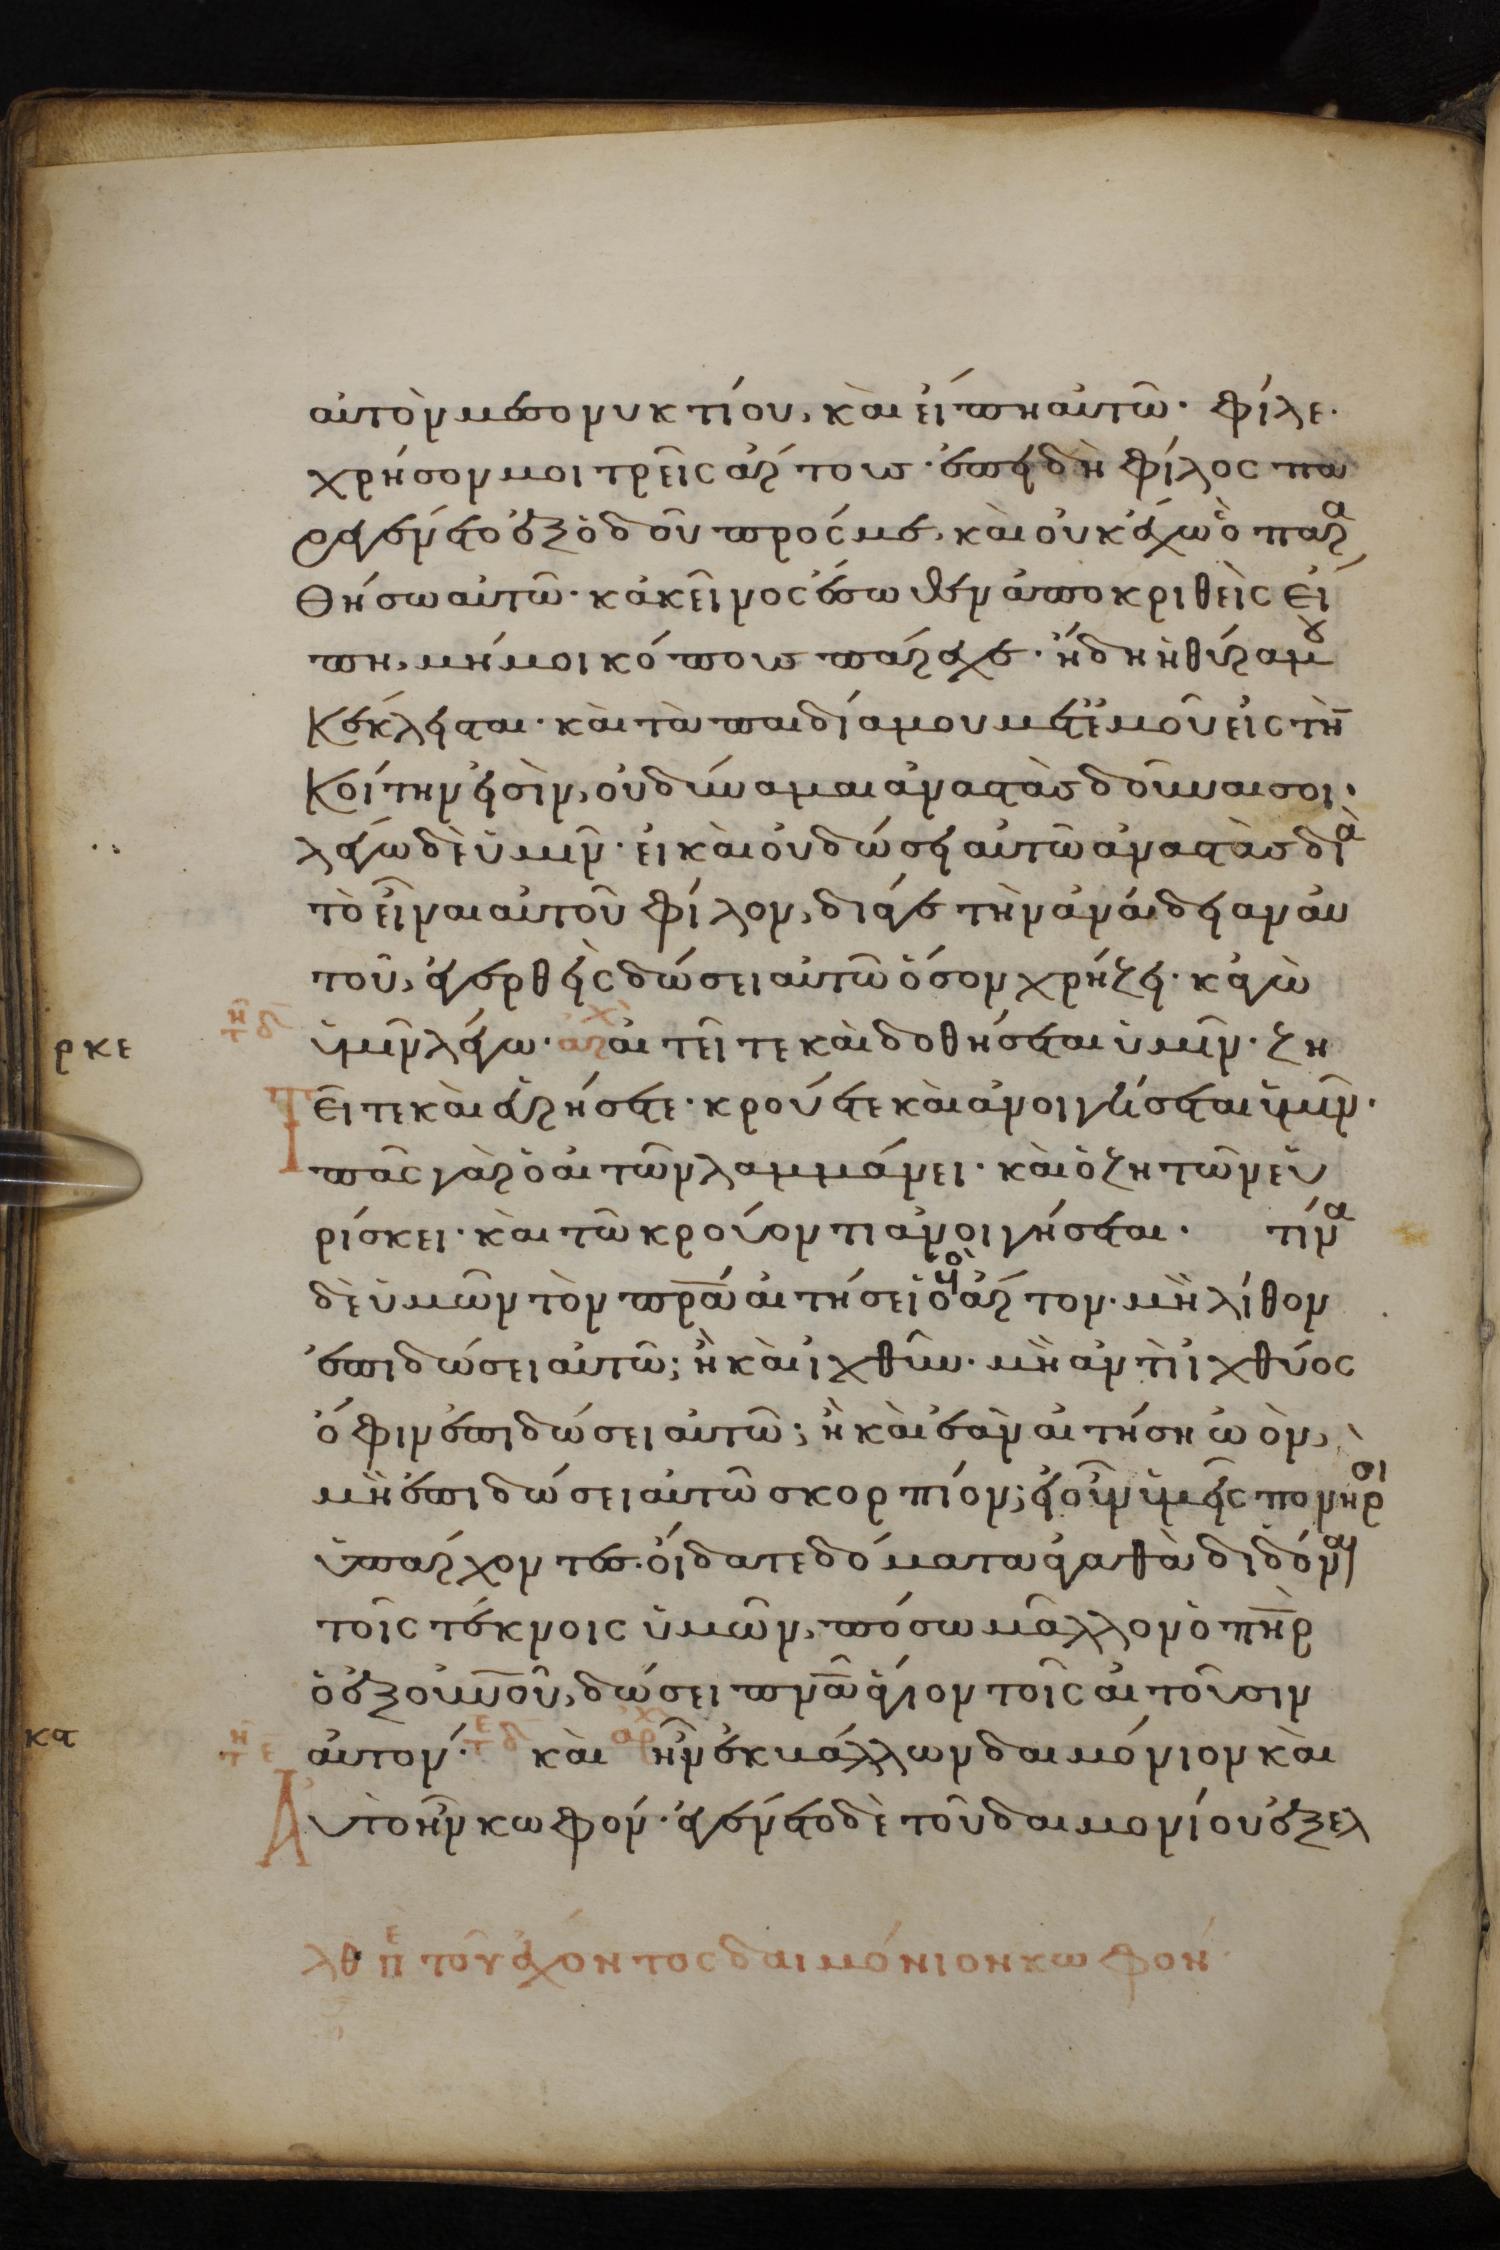 αὐτὸν μεσονυκτίου, καὶ εἴπη αὐτῶ· φίλε·
χρῆσον μοι τρεῖς ἄρτους· ἐπειδὴ φίλος πα
ραγένετο ἐξ ὁδοῦ πρός με, καὶ οὐκ ἔχω ὃ παρα
θήσω αὐτῶ· κἀκεῖνος ἔσωθεν ἀποκριθεὶς εἴ
πη, μή μοι κόπους πάρεχε· ἤδη ἡ θύρα μου
κέκλεισται· καὶ τὰ παιδία μου μετ ἐμοῦ εἰς τὴν
κοίτην εἰσὶν, οὐ δύναμαι ἀναστὰς δοῦναι σοι·
λέγω δὲ ὑμῖν· εἰ καὶ οὐ δώσει αὐτῶ ἀναστὰς διὰ
τὸ εἶναι αὐτοῦ φίλον, διά γε τὴν ἀναίδειαν αὐ
τοῦ, ἐγερθεὶς δώσει αὐτῶ ὅσον χρήζει· κἀγὼ
ρκε ὑμῖν λέγω· αἰτεῖτε καὶ δοθήσεται ὑμῖν· ζη
Τεῖτε καὶ εὑρήσετε· κρούετε καὶ ἀνοιγήσεται ὑμῖν·
πᾶς γὰρ ὁ αἰτῶν λαμβάνει· καὶ ὁ ζητῶν εὑ
ρίσκει· καὶ τῶ κρούοντι ἀνοιγήσεται· τίνα
δὲ ὑμῶν τὸν πρα αἰτήσει ὁ υἱὸς ἄρτον· μὴ λίθον
ἐπιδώσει αὐτῶ; ἢ καὶ ἰχθῦν· μὴ ἀντὶ ἰχθύος
ὄφιν ἐπιδώσει αὐτῶ; ἢ καὶ ἐὰν αἰτήση ὠὸν,
μὴ ἐπιδώσει αὐτῶ σκορπίον; εἰ οὖν ὑμεῖς πονηροι
ὑπάρχοντες· οἴδατε δόματα ἀγαθὰ διδόναι
τοῖς τέκνοις ὑμῶν, πόσω μᾶλλον ὁ πηρ
ὁ ἐξ οὐνοῦ, δώσει πνα ἅγιον τοῖς αἰτοῦσιν
κα αὐτόν· καὶ ἦν ἐκβάλλων δαιμόνιον καὶ
Αὐτὸ ἦν κωφόν· ἐγένετο δὲ τοῦ δαιμονίου ἐξελ
λθ πε τοῦ ἔχοντος δαιμόνιον κωφόν·